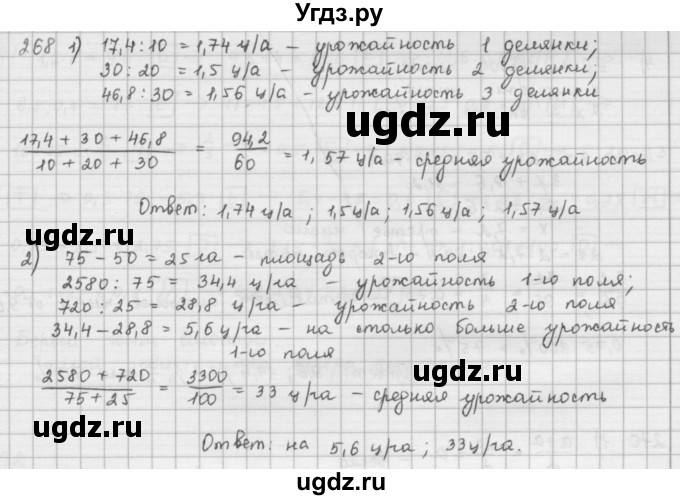 Угдз.ру
268 1) 17,4 : 10 = 1,74 ц/а – урожайность 1 делянки;
30 : 20 = 1,5 ц/а – урожайность 2 делянки;
46,8 : 30 = 1,56 ц/а – урожайность 3 делянки
ugdz.ru
(17,4 + 30 + 46,8)/(10 + 20 + 30) = 94,2/60 = 1,57 ц/а – средняя урожайность
Ответ: 1,74 ц/а ; 1,5 ц/а ; 1,56 ц/а ; 1,57 ц/а
ugdz.ru
2) 75 – 50 = 25 га – площадь 2-го поля
2580 : 75 = 34,4 ц/га – урожайность 1-го поля;
720 : 25 = 28,8 ц/га – урожайность 2-го поля
34,4 – 28,8 = 5,6 ц/га – на столько больше урожайность
1-го поля
(2580 + 720)/(75 + 25) = 3300/100 = 33 ц/га – средняя урожайность
ugdz.ru
Ответ: на 5,6 ц/га ; 33 ц/га.
ugdz.ru
ugdz.ru